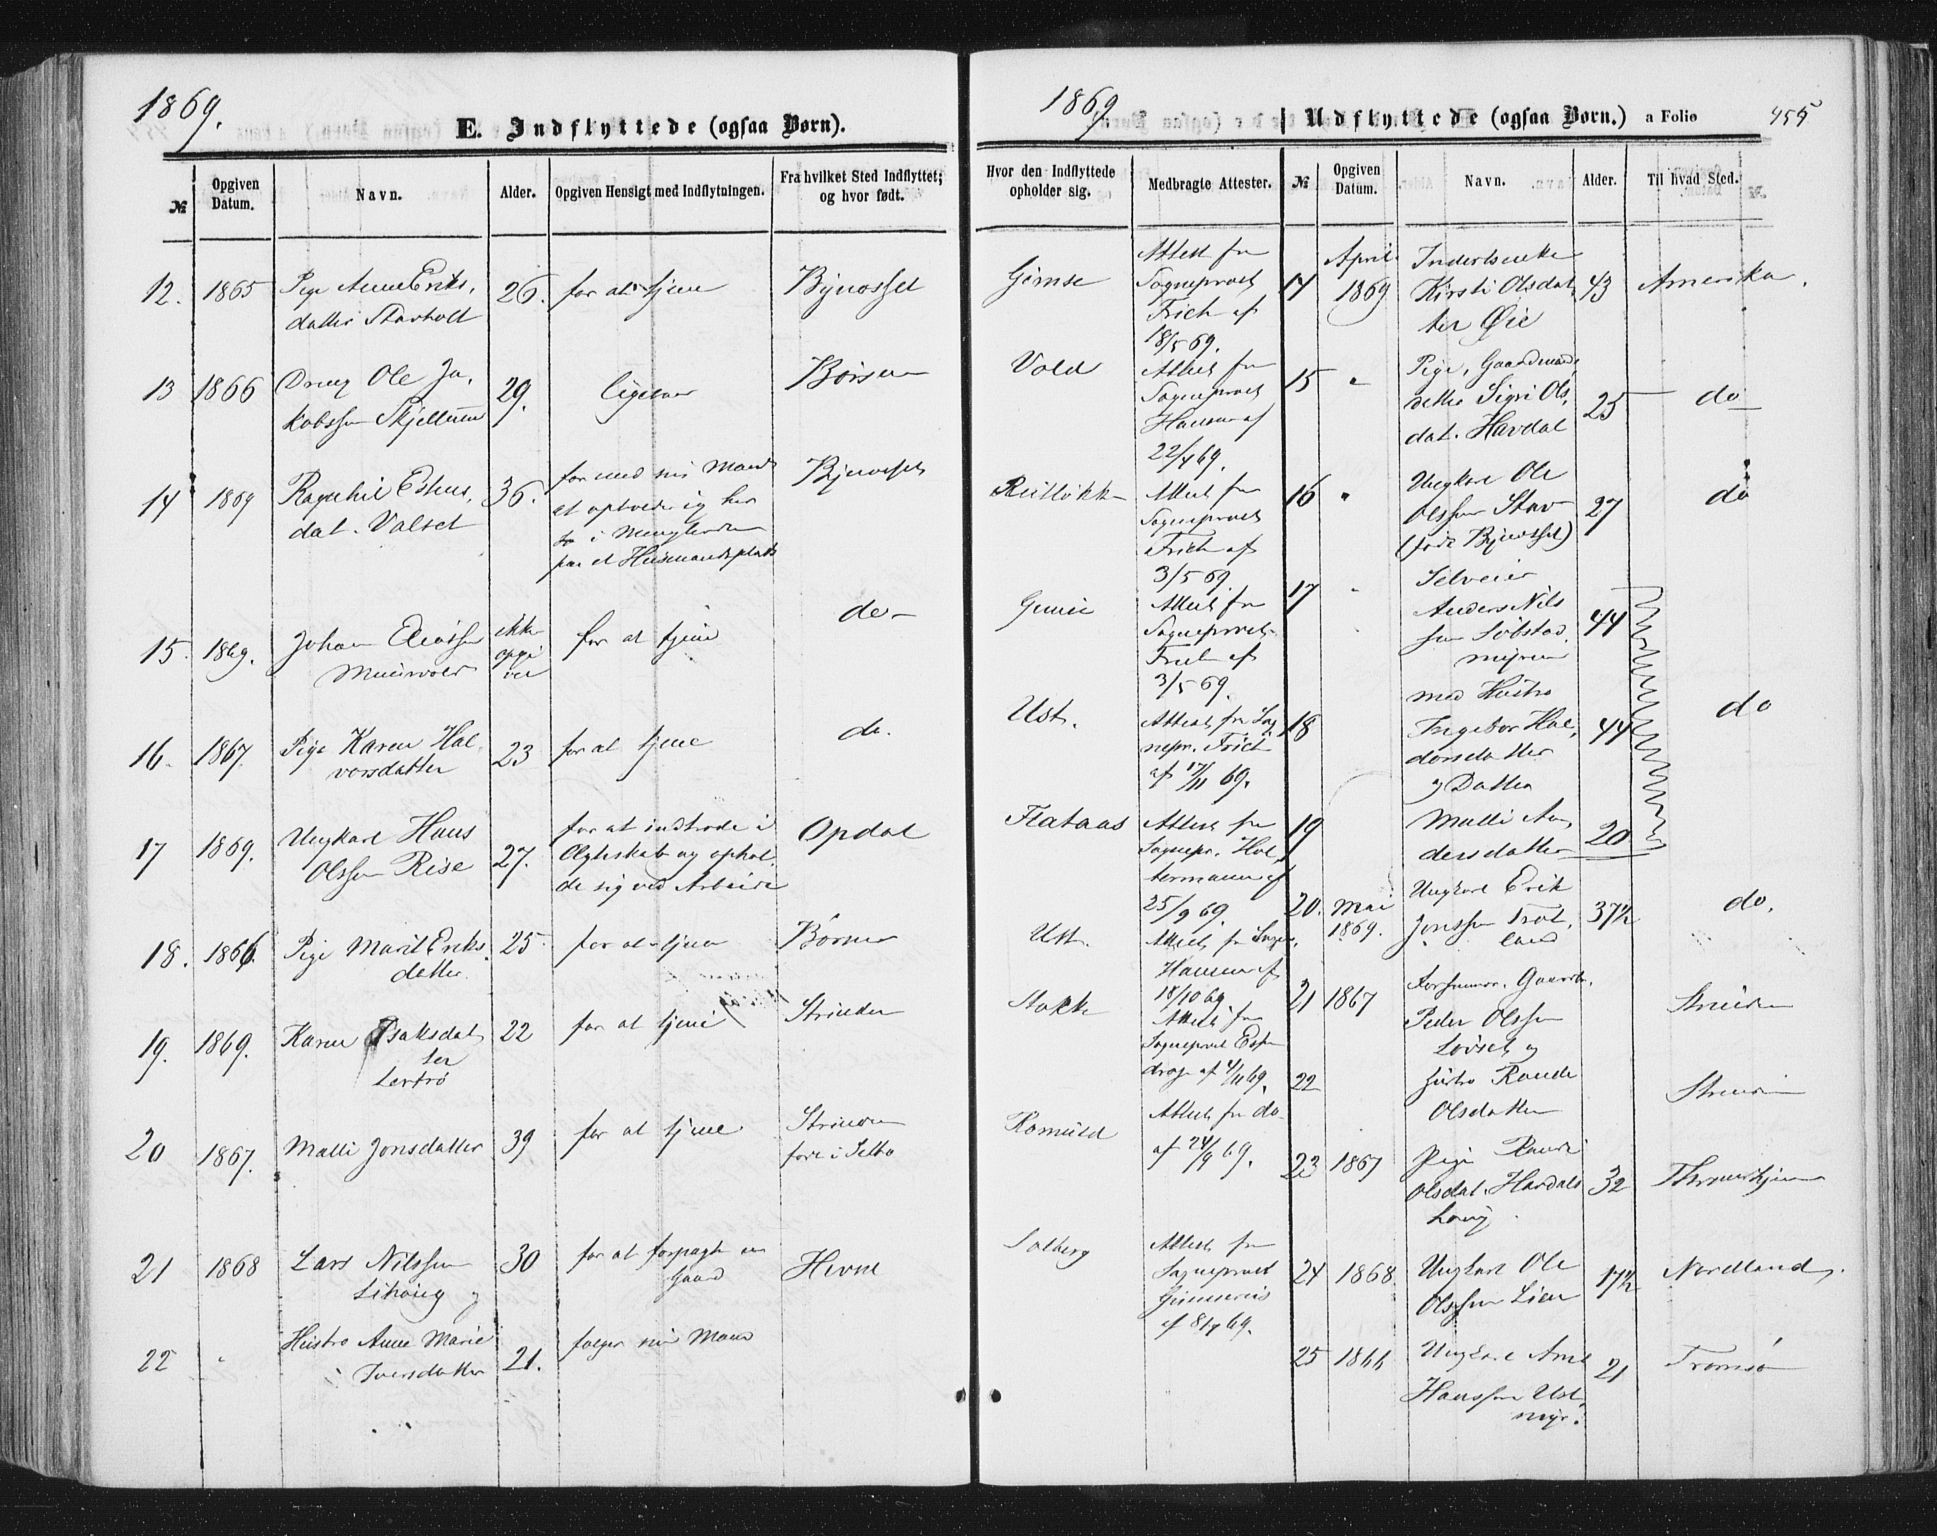 1869.
E. Indflyttede (ogsaa Børn).
№
Opgiven Datum.
Navn.
Alder.
Opgiven Hensigt med Indflytningen.
Fra hvilket Sted Indflyttet;
og hvor født.
12. 1865 Pige Anne Eriks, 26. for at tjene Bynæsset
datter Stavholt
13 1866 Dreng Ole Ja, 29. ligesaa Børsen
kobssen
14 1869 Ragnhil 36. for med sin Mand Bynæsset
dat. Valset
at opholde sig her
i
paa et Husmandsplads
15. 1869. Johan ikke for at tjene do
opgi
vet
16. 1867. Pige Karen Hal, 23 for at tjene do.
vorsdatter
17 1869. Ungkarl Hans 27. for at indtræde i Opdal
Olssen Rise
Ægteskab og ophol,
de sig ved Arbeide
18. 1866. Pige Marit Eriks, 25 for at tjene Børsen
datter
19. 1869. Karen Isaksdat, 22 for at tjene Strinden
ter
Lertrø
20 1867. Malli Jonsdatter 39 for at tjene Strinden
født i Selbo
21 1868 Lars Nilssen 30 for at forpagte en Hevne
Gaard
og
22 " Hustro Anne Marie 21. følger sin Mand
Iversdatter
1869
Udflyttede (ogsaa Børn.) a Folio 455
Hvor den Indflyttede
opholder sig.
Medbragte Attester.
№
Opgiven
Datum.
Navn.
Alder.
Til hvad Sted.
Gimse
Attest fra
Sogneprest
Frich af
18/5 69.
Vold
Attest fra
Sogneprest
Hansen af
22/4 69.
Attest fra
Sogneprest
Frich af
3/5 69.
Attest fra
Sogneprest
Frich af
3/5 69.
Ust.
Attest fra Sog,
nepr. Frich
af 17/11 69.
Flataas
Attest fra
Sognepr. Hal,
termann af
25/9 69.
Ust.
Attest fra Sogn.
Hansen af
18/10 69.
Stokke
Attest fra
Sogneprest Espen
drop af 4/11 69.
Attest fra do
af 24/9 69.
Solberg
Attest fra
Sogneprest
14 April 1869 Inderstenke
Kirsti Olsdat, 43 Amerika.
ter Øie
15 " Pige, Gaardmand,
datter Sigri Ols, 25 do
dat. Havdal
16 " Ungkarl Ole
Olssen Stav 27 do
(født Bynæsset)
17 " Selveier
Anders Nils 44
sen Løbstad,
myren
18 med Hustro
Ingebor Hal, 44 do
dorsdatter
og Datter
19 Malli An, 20
dersdatter
20. Mai 1869. Ungkarl Erik 37½ do.
Jonssen Trøt,
land
21 1867 Gaardm.
Peder Olssen Strinden
Løvset og
22 Hustro Randi Strinden
Olsdatter
23 1867 Pige Randi
Olsdat. Havdals 32 Throndhjem
houg
24 1868. Ungkarl Ole 17½ Nordland.
Olssen Lien
25 1866 Ungkarl Arnt 21 Tromsø
Hanssen Ust,
myr.